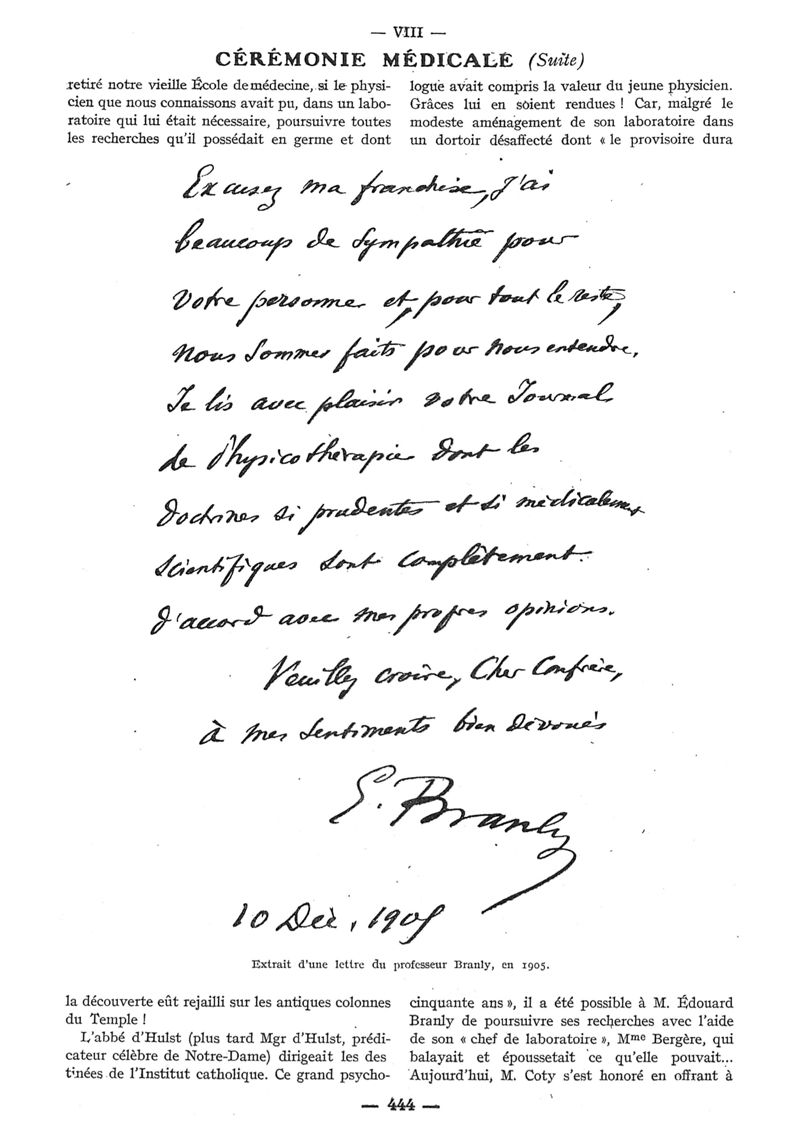 — VIII —
CÉRÉMONIE MÉDICALE (Suite)
retiré notre vieille École de médecine, si le physi-
cien que nous connaissons avait pu, dans un labo-
ratoire qui lui était nécessaire, poursuivre toutes
les recherches qu'il possédait en germe et dont
logue avait compris la valeur du jeune physicien.
Grâces lui en soient rendues ! Car, malgré le
modeste aménagement de son laboratoire dans
un dortoir désaffecté dont « le provisoire dura
Excusez ma franchise, j'ai
beaucoup de sympathie pour
votre personne et, pour tout le reste,
nous sommes faits pour nous entendre.
Je lis avec plaisir votre Journal
de Physicothérapie dont les
doctrines si prudentes et si médicalement
scientifiques sont complètement
d'accord avec mes propres opinions.
Veuillez croire, Cher Confrère,
à mes sentiments bien dévoués
E. Branly
10 Déc, 1905
Extrait d'une lettre du professeur Branly, en 1905.
la découverte eût rejailli sur les antiques colonnes
du Temple !
L'abbé d'Hulst (plus tard Mgr d'Hulst, prédi-
cateur célèbre de Notre-Dame) dirigeait les des
tinées de l'Institut catholique. Ce grand psycho-
cinquante ans », il a été possible à M. Édouard
Branly de poursuivre ses recherches avec l'aide
de son « chef de laboratoire », Mme Bergère, qui
balayait et époussetait ce qu'elle pouvait...
Aujourd'hui, M. Coty s'est honoré en offrant à
— 444 —